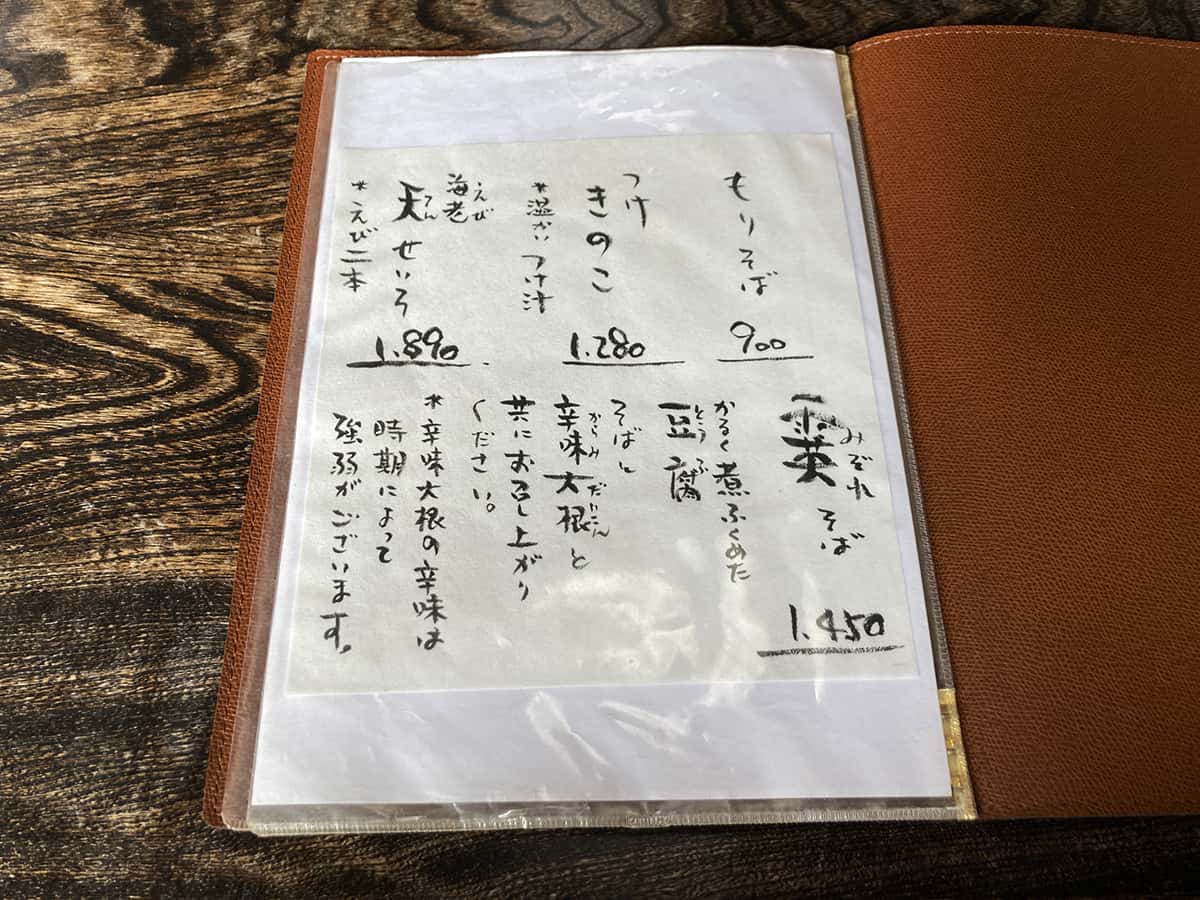 もりそば
900
つけ
きのこ
*温かいつけ汁
1.280
えび
海老
てん
天せいろ
*えび二本
1.890
みぞれ
霙そば
1.450
かるく煮ふくめた
とうふ
豆腐
そばと
からみだいこん
辛味大根と
共にお召し上がり
ください。
*辛味大根の辛味は
時期によって
強弱がございます。